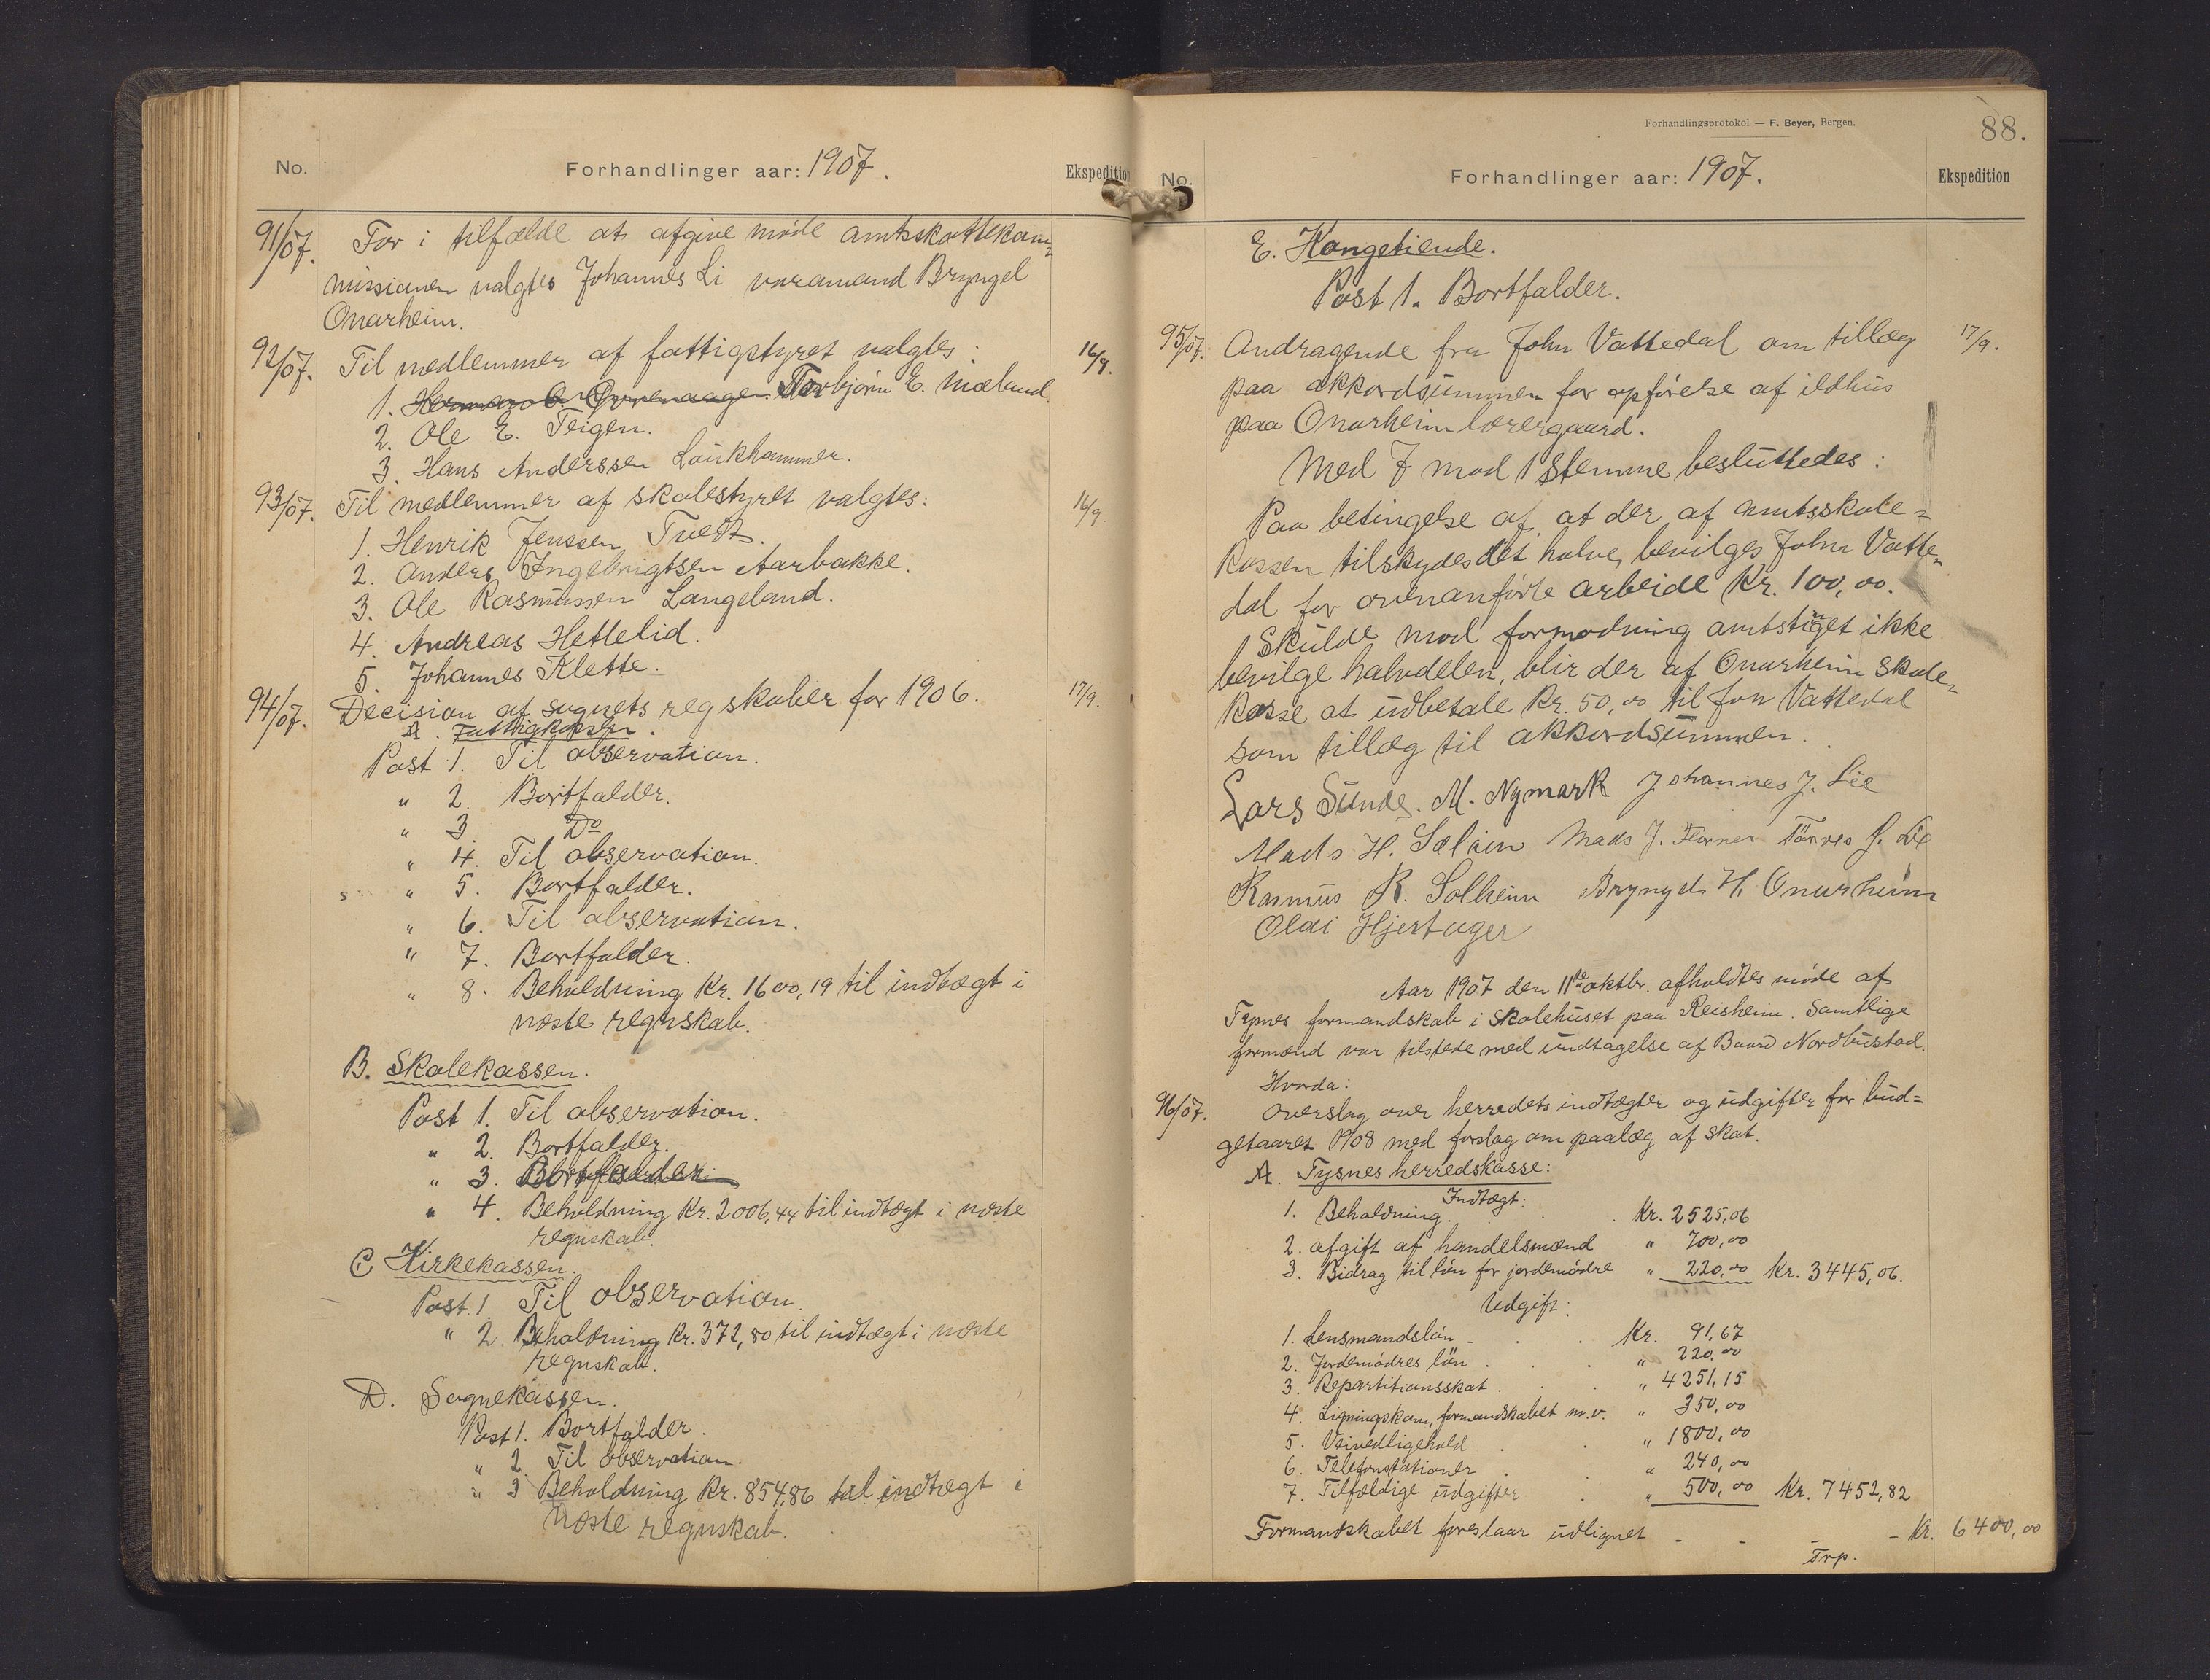 No.
Forhandlinger aar: 1907.
Ekspedition
91/07. For i tilfælde at afgive møde amtsskattekom=
missionen valgtes Johannes Li varamand Bryngel
Onarheim.
92/07. Til medlemmer af fattigstyret valgtes: 16/9.
1. Torbjørn E. Mæland.
2. Ole E. Teigen.
3. Hans Anderssen Laukhammer.
93/07. Til medlemmer af skolestyret valgtes: 16/9.
1. Henrik Jenssen Tvedt.
2. Anders Ingebrigtsen Aarbakke.
3. Ole Rasmussen Langeland.
4. Andreas Hettelid.
5. Johannes Klette.
94/07. Decision af sognets regskaber for 1906. 17/9.
A. Fattigkassen.
Post 1. Til observation.
" 2. Bortfalder.
" 3. Do
" 4. Til observation.
" 5. Bortfalder.
" 6. Til observation.
" 7. Bortfalder.
" 8. Beholdning Kr. 1600,19 til indtægt i
næste regnskab.
B. Skolekassen.
Post 1. Til observation.
" 2. Bortfalder.
" 3. Bortfalder.
" 4. Beholdning Kr. 2006,44 til indtægt i næste
regnskab.
C Kirkekassen.
Post. 1 Til observation.
" 2. Beholdning Kr. 372,80 til indtægt i næste
regnskab.
D. Sognekassen.
Post 1. Bortfalder.
" 2. Til observation.
" 3 Beholdning Kr. 854,86 til indtægt i
næste regnskab.
Forhandlingsprotokol — F. Beyer, Bergen.
88.
No.
Forhandlinger aar: 1907.
Ekspedition
E. Kongetiende.
Post 1. Bortfalder.
95/07. Andragende fra John Vattedal om tillæg 17/9.
paa akkordsummen for opførelse af ildhus
paa Onarheim lærergaard.
Med 7 mod 1 stemme besluttedes:
Paa betingelse af at der af amtsskole=
kassen tilskydes det halve, bevilges John Vatte=
dal for ovenanførte arbeide Kr. 100,00.
Skulde mod formodning amtstinget ikke
bevilge halvdelen, blir der af Onarheim skole=
kasse at udbetale Kr. 50,00 til Jon Vattedal
som tillæg til akkordsummen.
Lars Sunde. M. Nymark Johannes J. Lie
Mads H. Sælen Mads J. Flornes Tørres J. Lie
Rasmus R. Solheim Bryngel H. Onarheim
Olai Hjertager
Aar 1907 den 11te oktbr. afholdtes møde af
Tysnes formandskab i skolehuset paa Reisheim. Samtlige
formænd var tilstede med undtagelse af Baard Nordbustad.
Hvorda:
96/07. Overslag over herredets indtægter og udgifter for bud=
getaaret 1908 med forslag om paalæg af skat.
A. Tysnes herredskasse:
Indtægt:
1. Beholdning. Kr. 2525,06
2. afgift af handelsmænd " 700,00
3. Bidrag til løn for jordemødre " 220,00 Kr. 3445,06.
Udgift:
1. Lensmandsløn - Kr. 91,67
2. Jordemødres løn . " 220,00
3. Repartitionsskat. " 4251,15
4. Ligningskom, formandskabet m.v. " 350,00
5. Veivedligehold . " 1800,00
6. Telefonstationer . " 240,00
7. Tilfældige udgifter . " 500,00 Kr. 7452,82
Formandskabet foreslaar udlignet - - - - Kr. 6400,00
Trp.